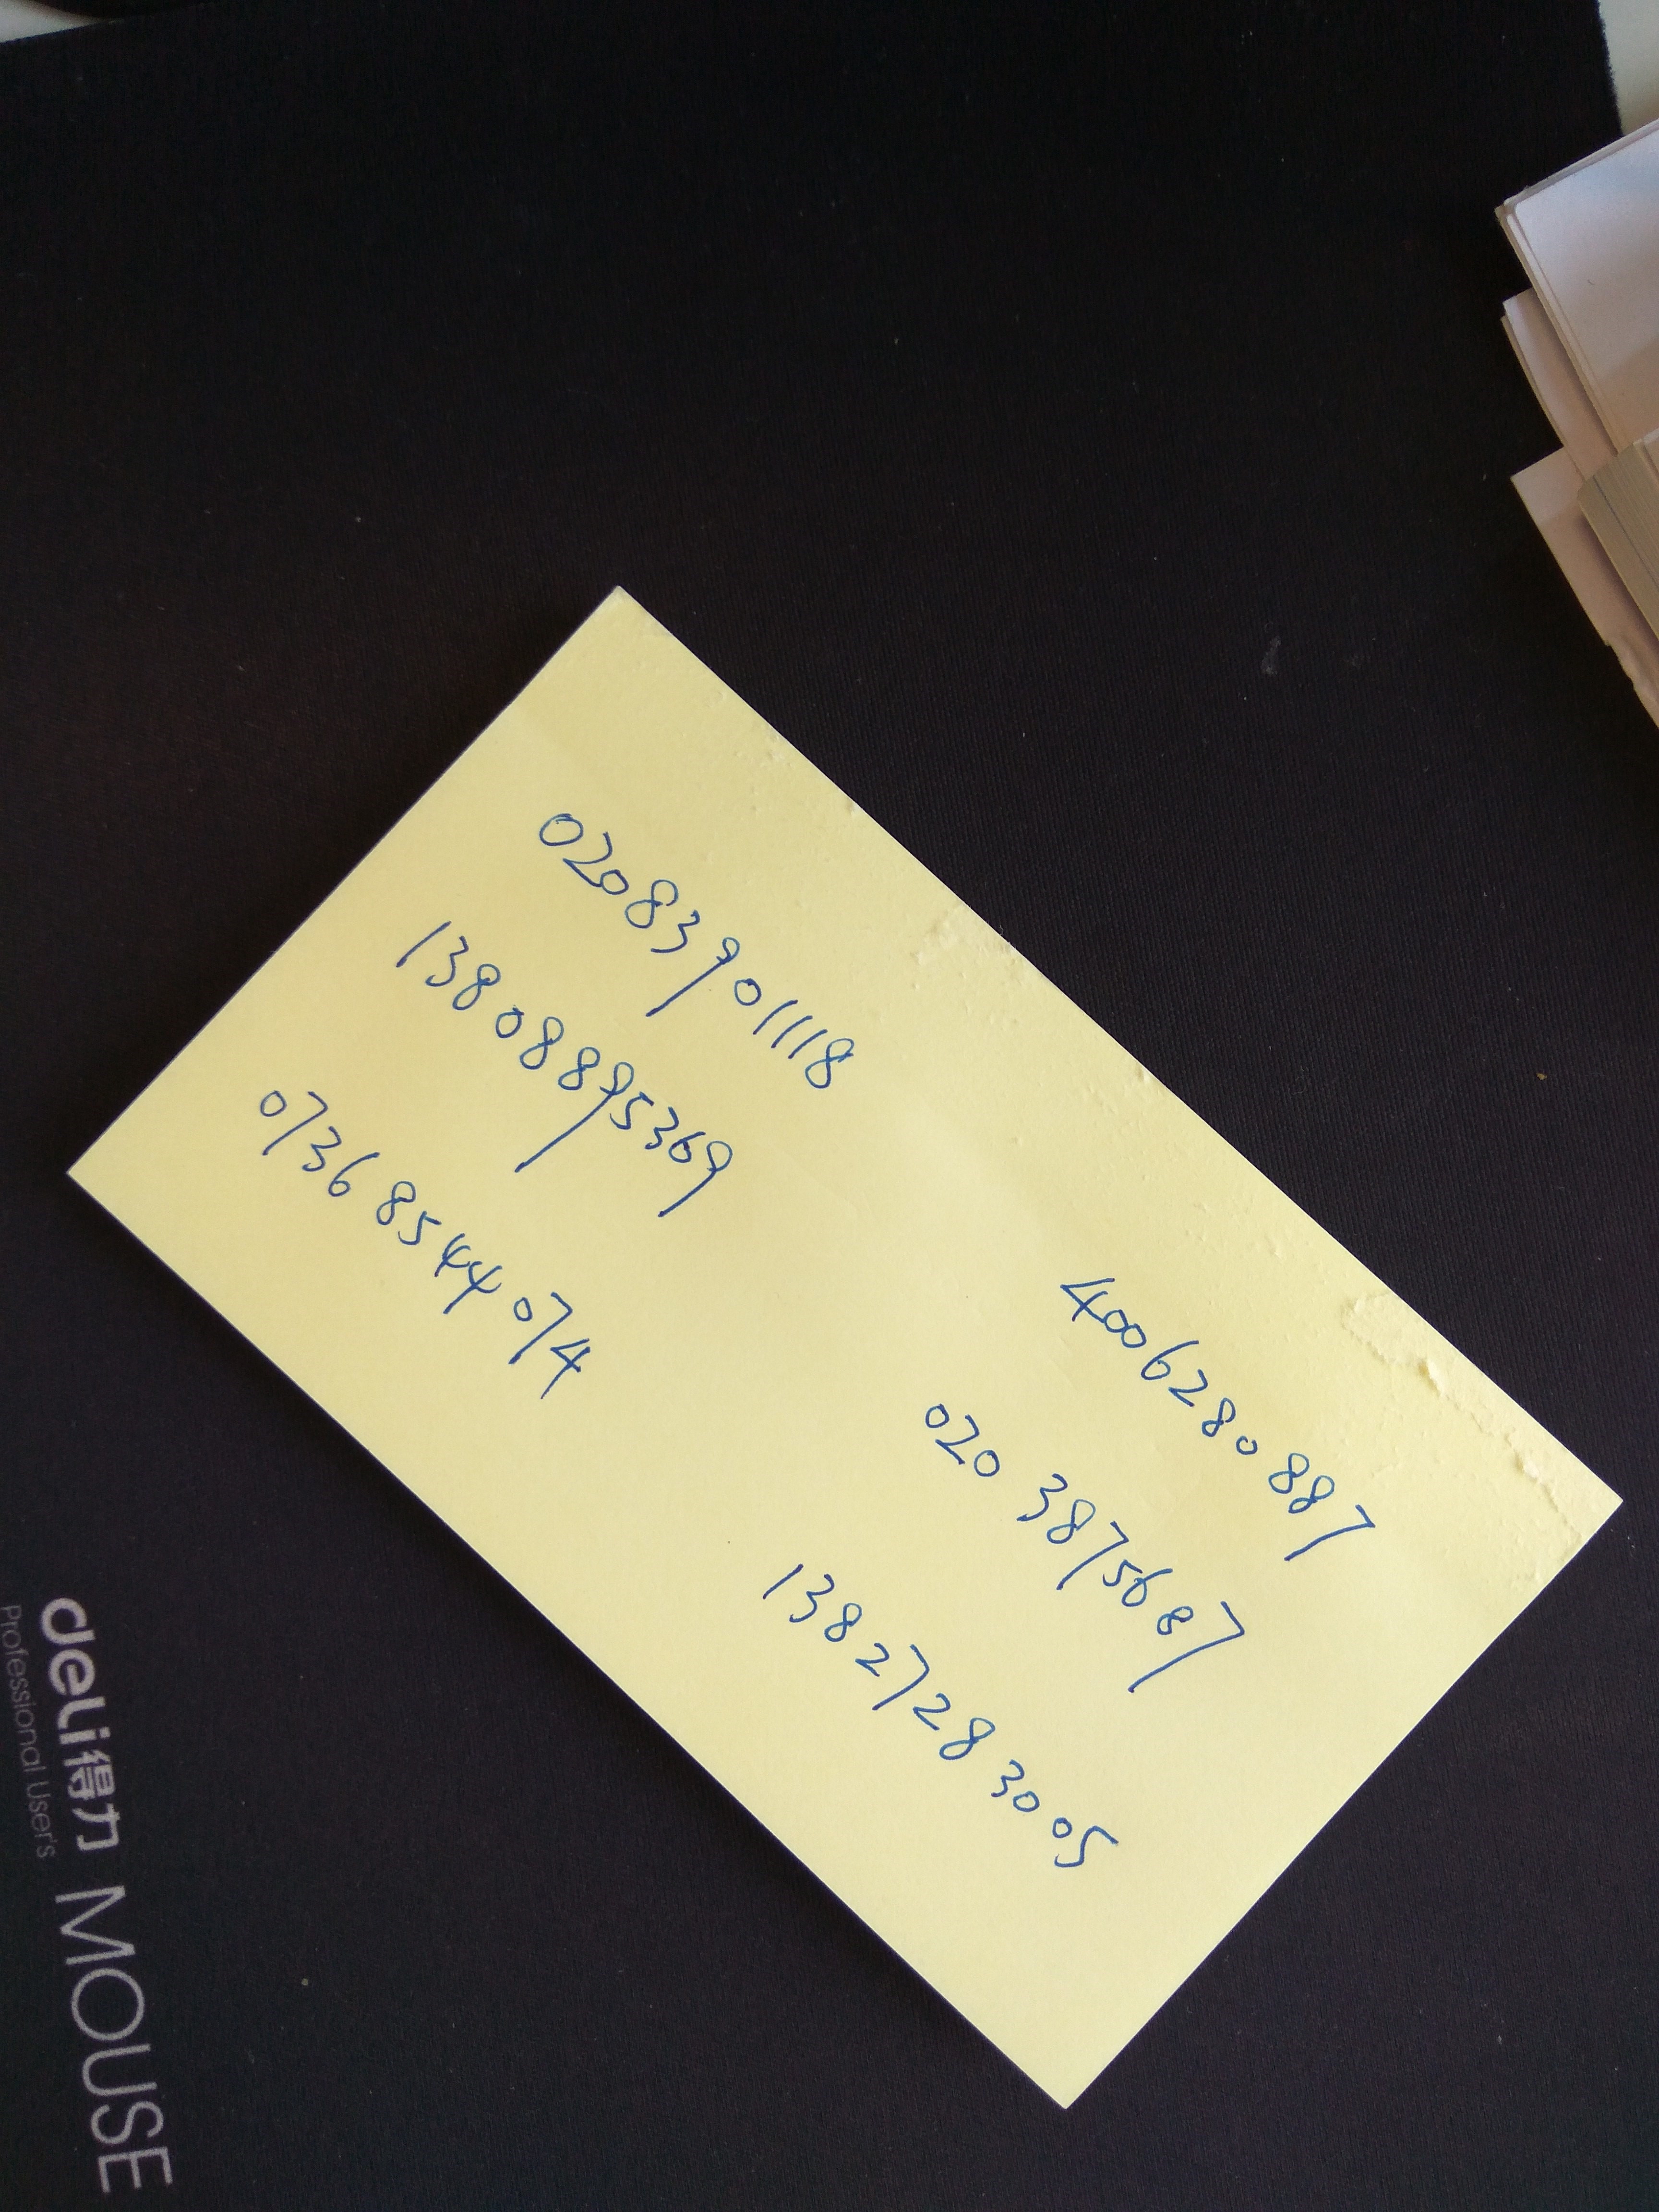 02083901118
13808895369
07368544074
4006280887
020 3875687
13827283005
deli得力 MOUSE
Professional User's